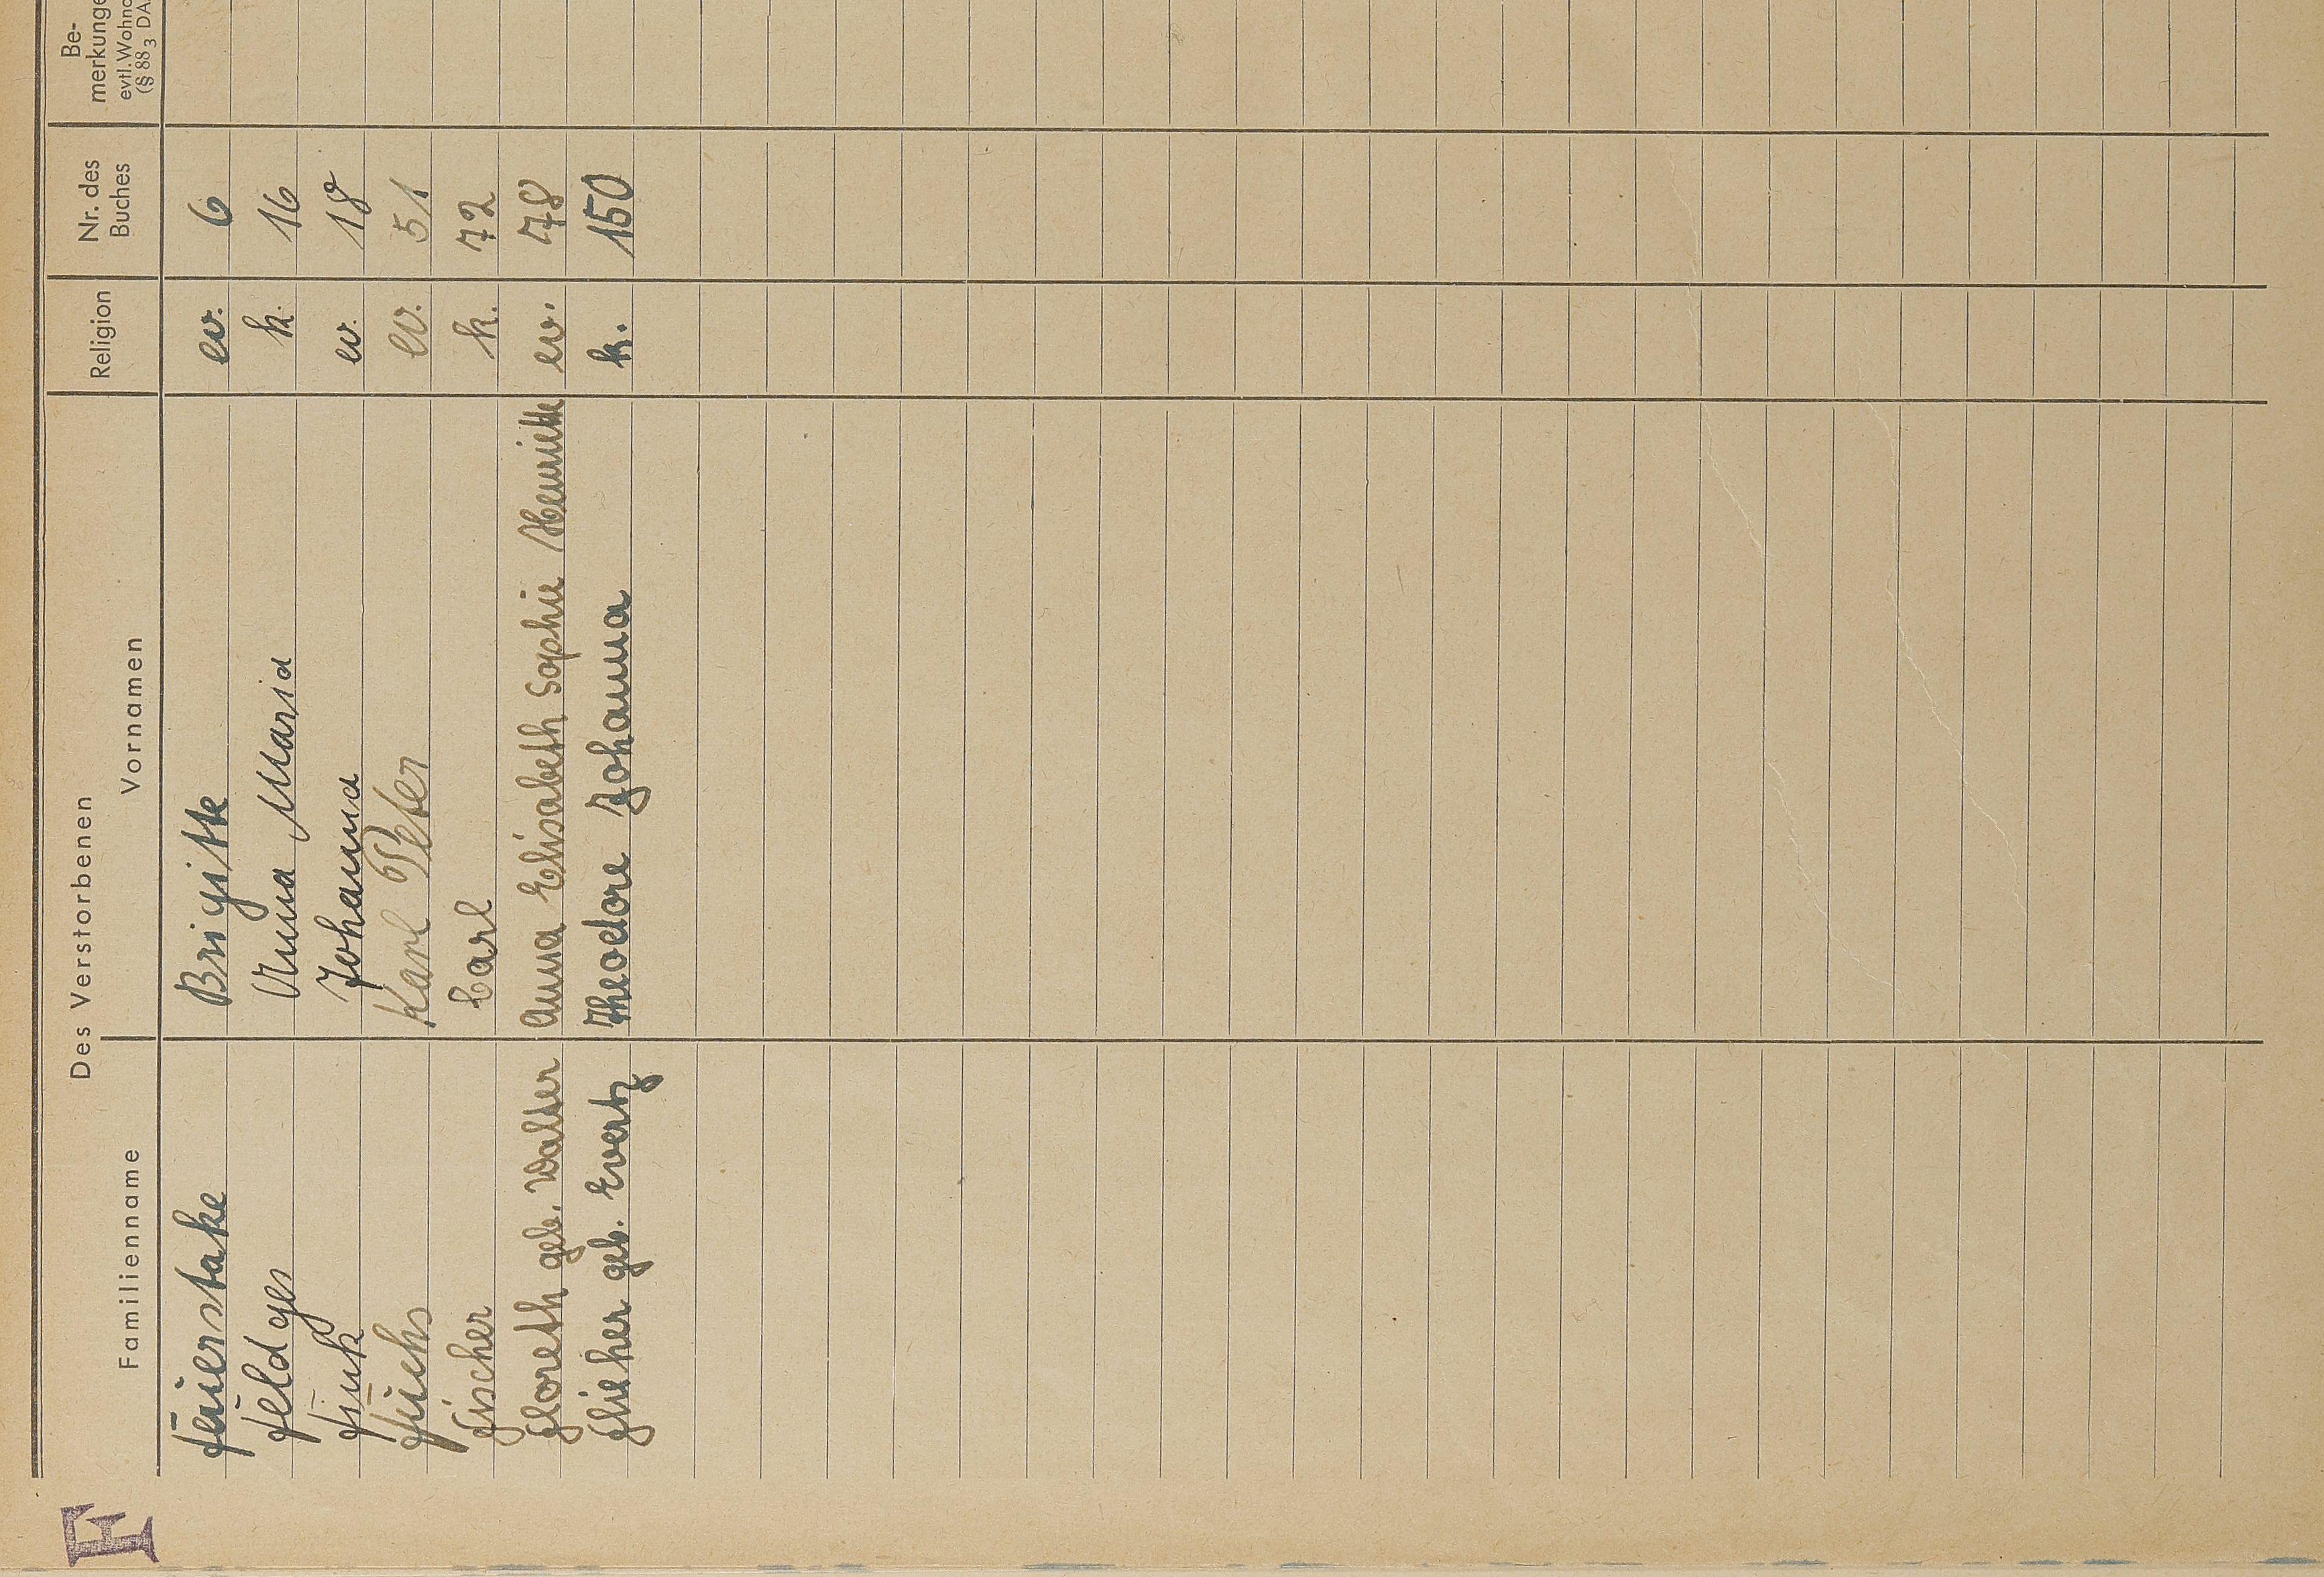 F
Des Verstorbenen
Familienname Vornamen Religion Nr. des Buches Be-
merkungen
evtl. Wohno
(§ 88 3 DA.
Feierstake Brigitte ev. 6
Feldges Anna Maria k. 16
Fink Johanna ev. 18
Fuchs Karl Peter ev. 51
Fischer Carl k. 72
Floreth geb. Walter Anna Elisabeth Sophie Henriette ev. 78
Flieher geb. Evertz Theodore Johanna k. 150